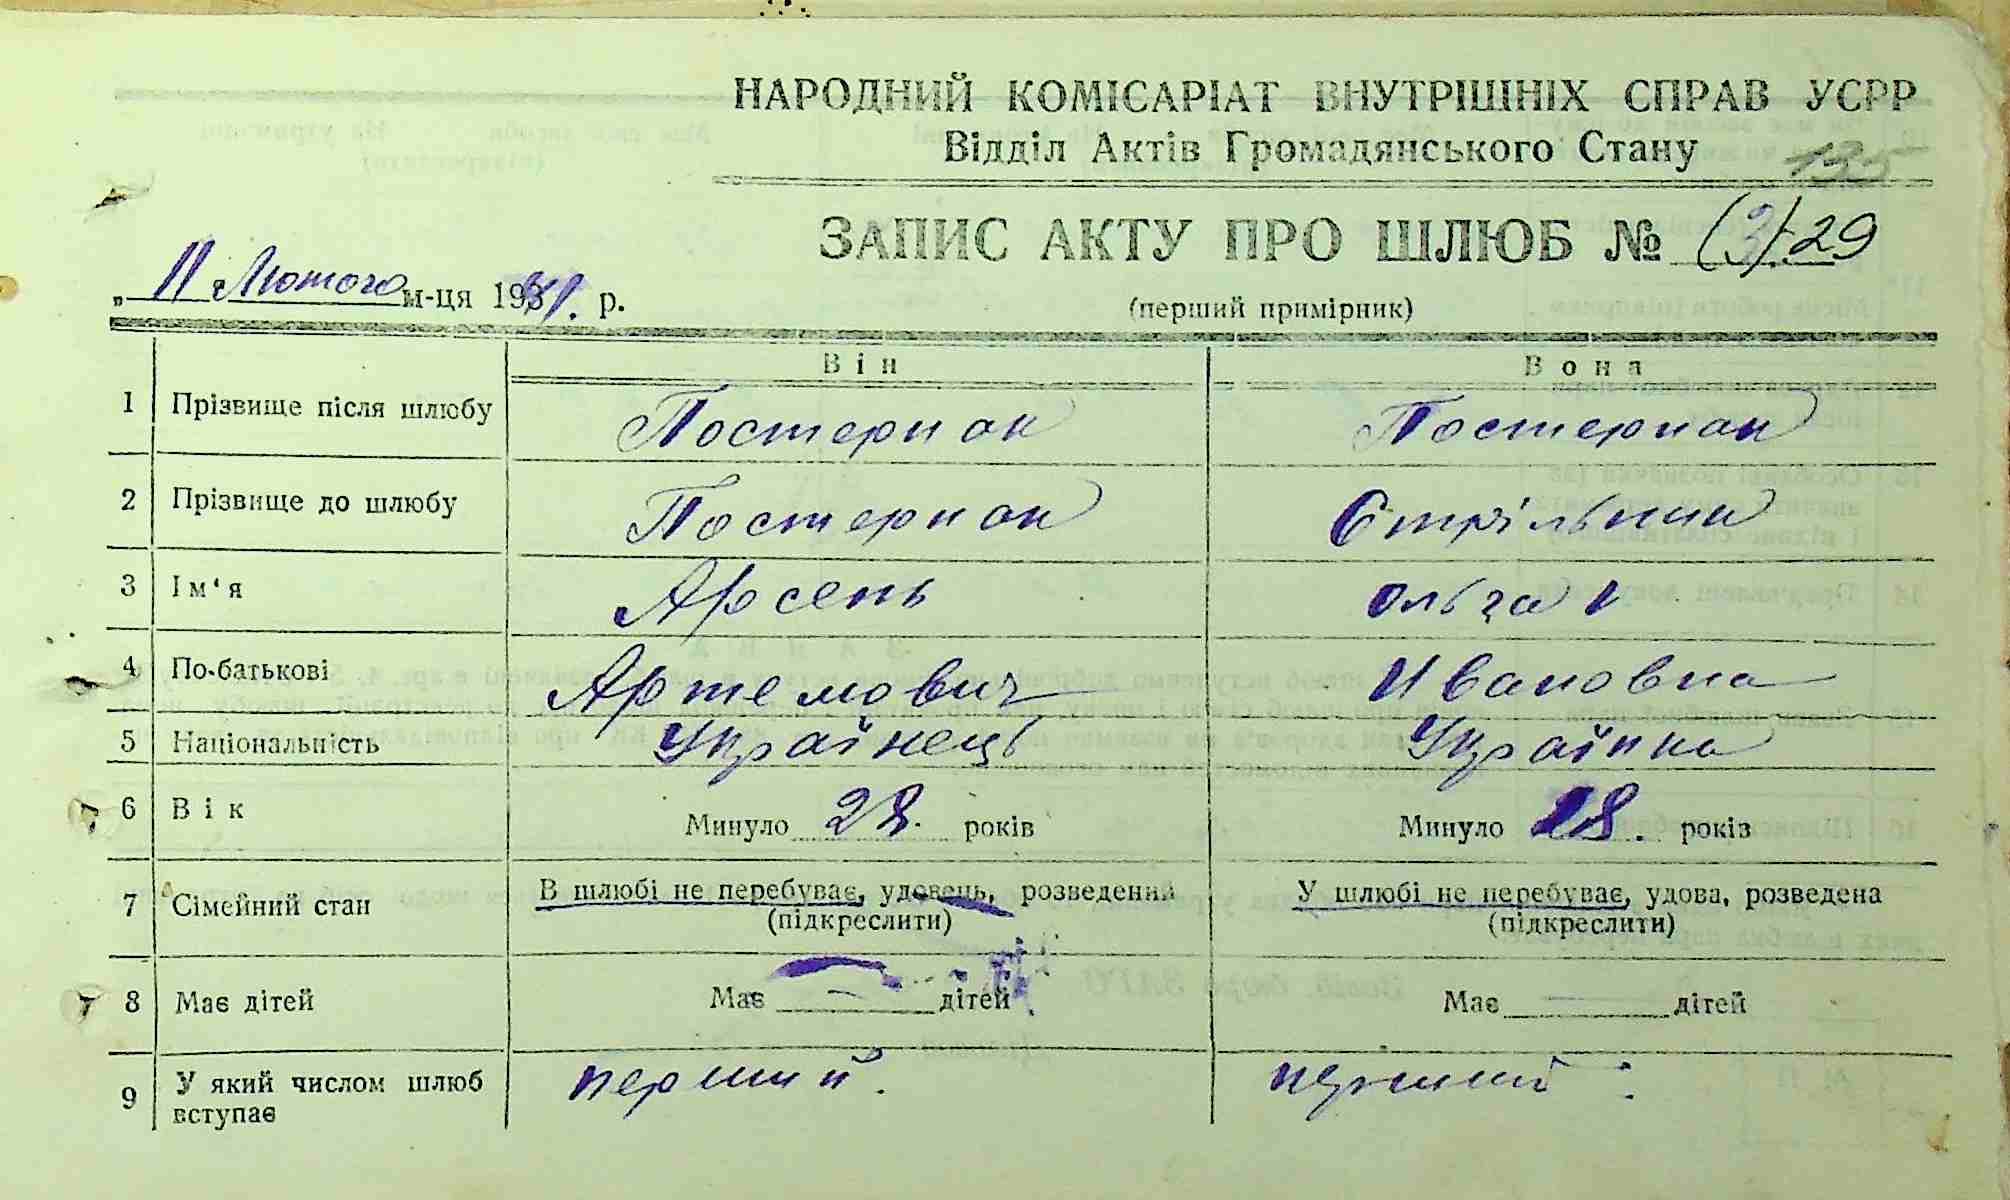 НАРОДНИЙ КОМІСАРІАТ ВНУТРІШНІХ СПРАВ УСРР
Відділ Актів Громадянського Стану 135
ЗАПИС АКТУ ПРО ШЛЮБ № 29
„ 11 Лютого м-ця 193 р.
(перший примірник)
Він Вона
1 Прізвище після шлюбу Постернак Постернак
2 Прізвище до шлюбу Постернак Стрільник
3 Ім‘я Арсень Ольга
4 По-батькові Артемович Ивановна
5 Національність Українець Українка
6 Вік Минуло 28. років Минуло 18. років
7 Сімейний стан В шлюбі не перебуває, удовець, розведений У шлюбі не перебуває, удова, розведена
(підкреслити) (підкреслити)
8 Має дітей Має — дітей Має — дітей
9 У який числом шлюб вступає перший. перший